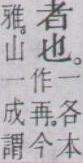 者也。
一各本
作再。今
雅。山一成謂